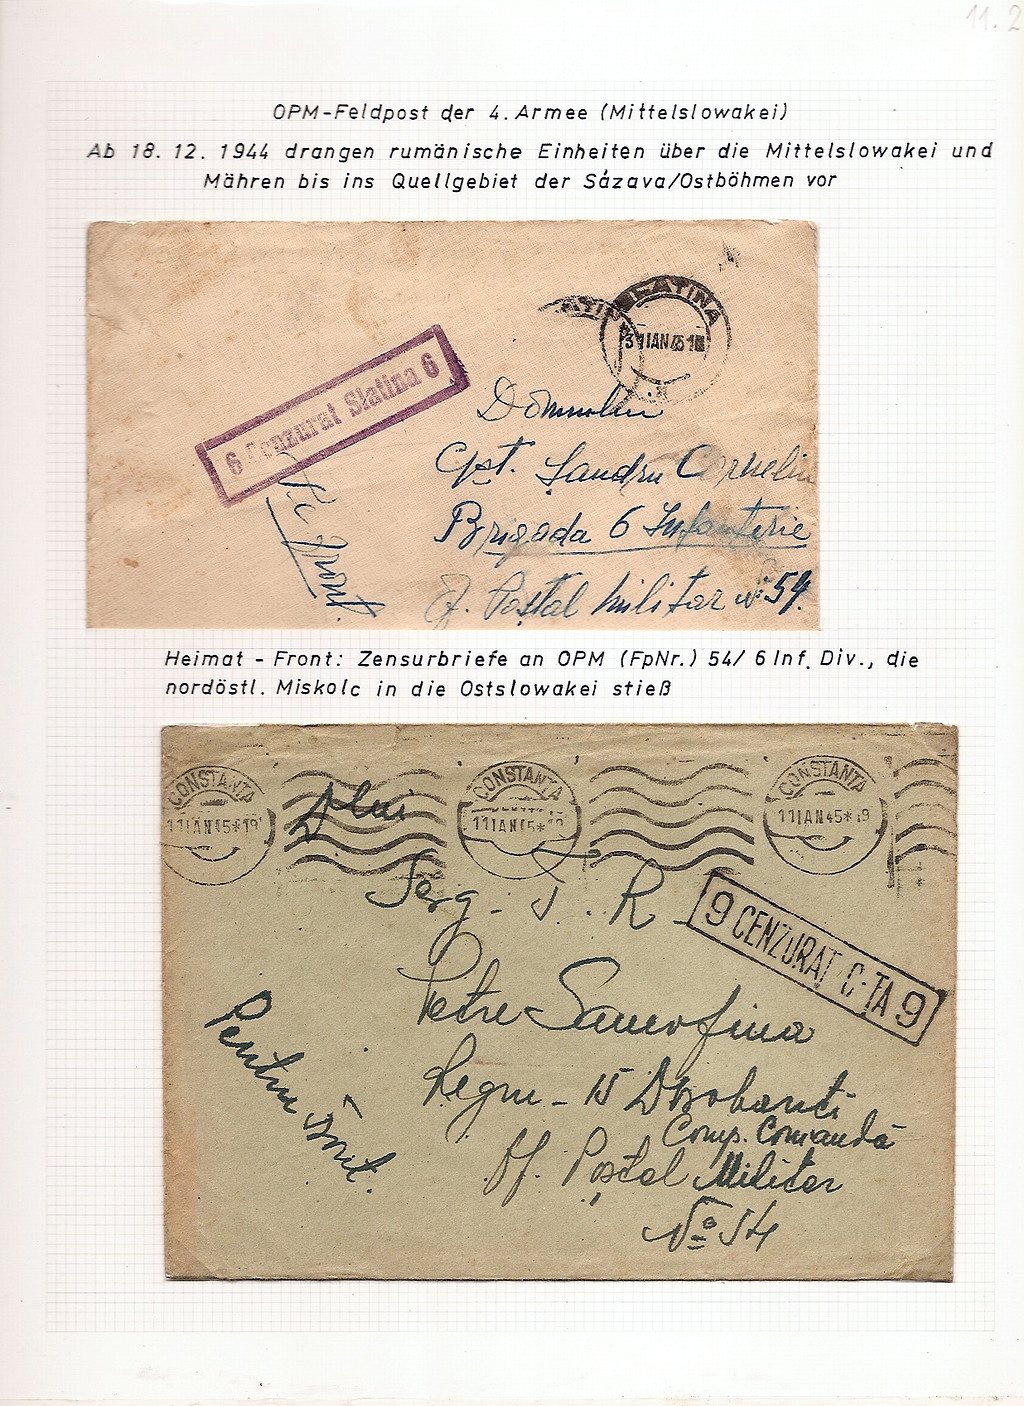 11.2
OPM-Feldpost der 4. Armee (Mittelslowakei)
Ab 18. 12. 1944 drangen rumänische Einheiten über die Mittelslowakei und
Mähren bis ins Quellgebiet der Sázava/Ostböhmen vor
SLATINA
31 IAN 45
6 Cenzurat Slatina 6
Cpt. Sandru Corneliu
Brigada 6 Infanterie
Of. Postal Militar No 54.
front.
Heimat - Front: Zensurbriefe an OPM (FpNr.) 54/ 6 Inf. Div., die
nordöstl. Miskolc in die Ostslowakei stieß
CONSTANTA CONSTANTA CONSTANTA
11 IAN 45*19 11 IAN 45*19 11 IAN 45*19
Dlui
Serg. T. R.
9 CENZURAT C-TA 9
Petre
Regm - 15 Dorobanti
Comp. Comandă
Of. Poştal Militar
No 54
Pentru Front.